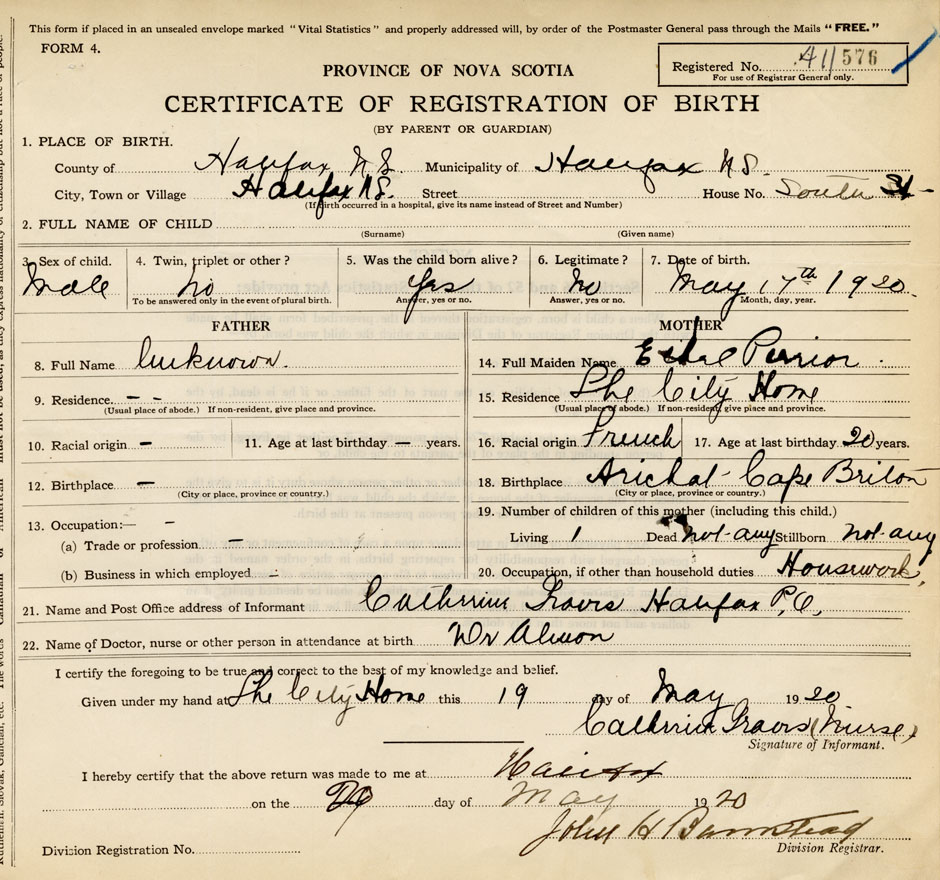 This form if placed in an unsealed envelope marked "Vital Statistics" and properly addressed will, by order of the Postmaster General pass through the Mails "FREE."
FORM 4.
Registered No. 411576
For use of Registrar General only.
PROVINCE OF NOVA SCOTIA
CERTIFICATE OF REGISTRATION OF BIRTH
(BY PARENT OR GUARDIAN)
1. PLACE OF BIRTH.
County of Halifax N.S. Municipality of Halifax N.S.
City, Town or Village Halifax N.S. Street House No. South St-
(If birth occurred in a hospital, give its name instead of Street and Number)
2. FULL NAME OF CHILD
(Surname) (Given name)
3. Sex of child. 4. Twin, triplet or other? 5. Was the child born alive? 6. Legitimate? 7. Date of birth.
Male No Yes No May 17th 1920.
To be answered only in the event of plural birth. Answer, yes or no. Answer, yes or no. Month, day, year.
FATHER MOTHER
8. Full Name Unknown. 14. Full Maiden Name Ethel Perrior
9. Residence. - - 15. Residence The City Home
(Usual place of abode.) If non-resident, give place and province. (Usual place of abode.) If non-resident, give place and province.
10. Racial origin - 11. Age at last birthday - years. 16. Racial origin French 17. Age at last birthday 20 years.
12. Birthplace - 18. Birthplace Arichat- Cape Briton
(City or place, province or country.) (City or place, province or country.)
13. Occupation:- - 19. Number of children of this mother (including this child.)
(a) Trade or profession - Living 1 Dead not-any Stillborn not-any
(b) Business in which employed - 20. Occupation, if other than household duties Housework.
21. Name and Post Office address of Informant Catherine Travis Halifax P.O.
22. Name of Doctor, nurse or other person in attendance at birth Dr Almon
I certify the foregoing to be true and correct to the best of my knowledge and belief.
Given under my hand at The City Home this 19 day of May 1920
Catherine Travis (Nurse)
Signature of Informant.
I hereby certify that the above return was made to me at Halifax
on the 20 day of May 1920
John H Barnstead
Division Registration No. Division Registrar.